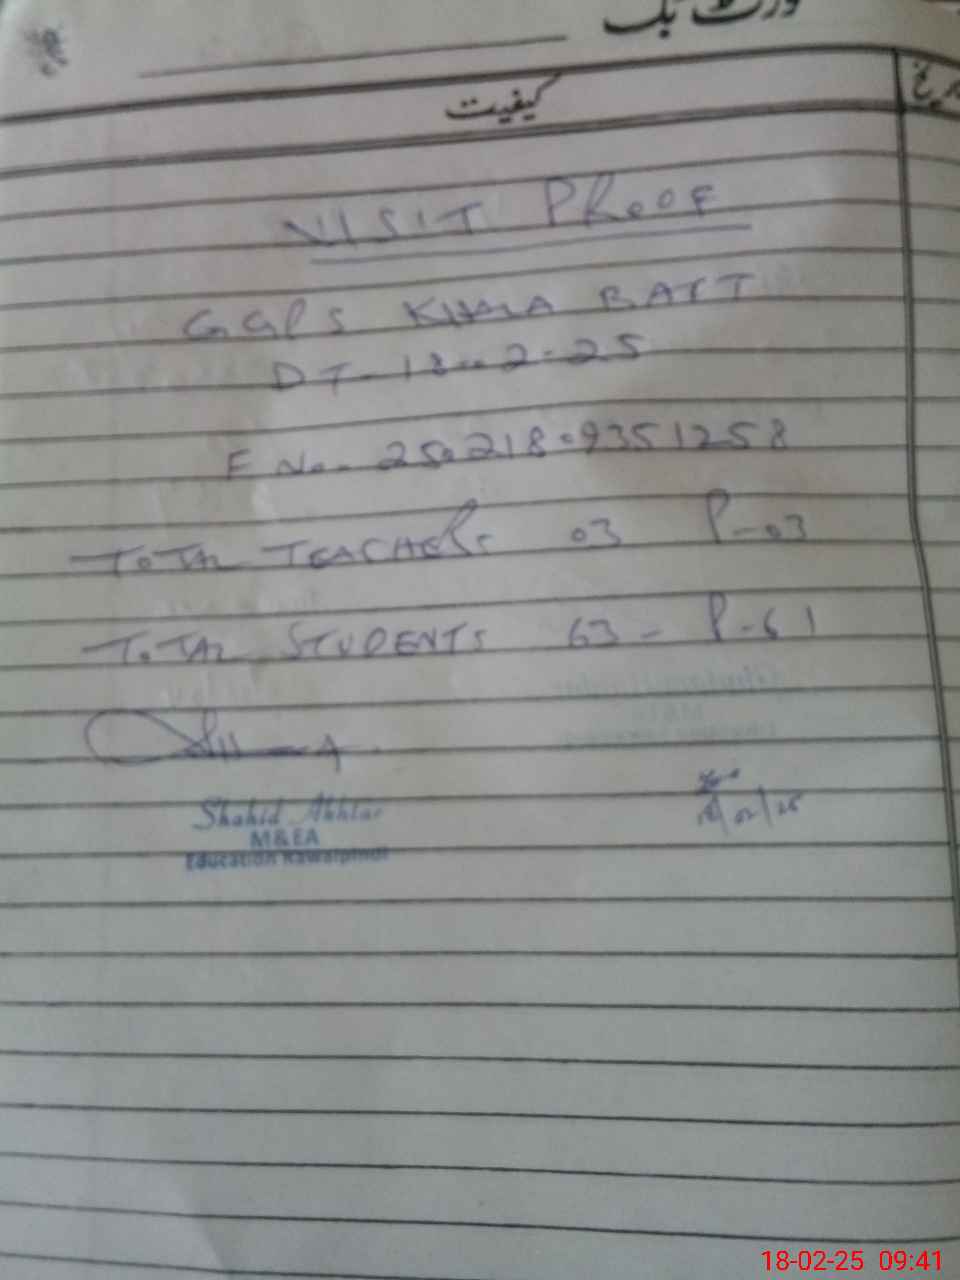 ورٹ بک
کیفیت
VISIT PROOF
GGPS KHALA BATT
DT-18-2-25
F No- 250218-9351258
TOTAL TEACHERS 03 P-03
TOTAL STUDENTS 63 - P-61
Shahid Akhtar
M&EA
Education Rawalpindi
18/02/25
18-02-25 09:41